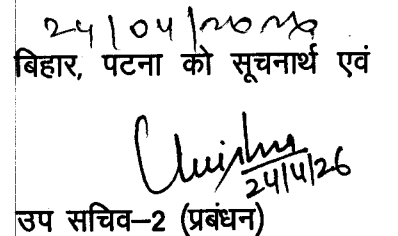 24/04/2026
बिहार, पटना को सूचनार्थ एवं
24/4/26
उप सचिव–2 (प्रबंधन)